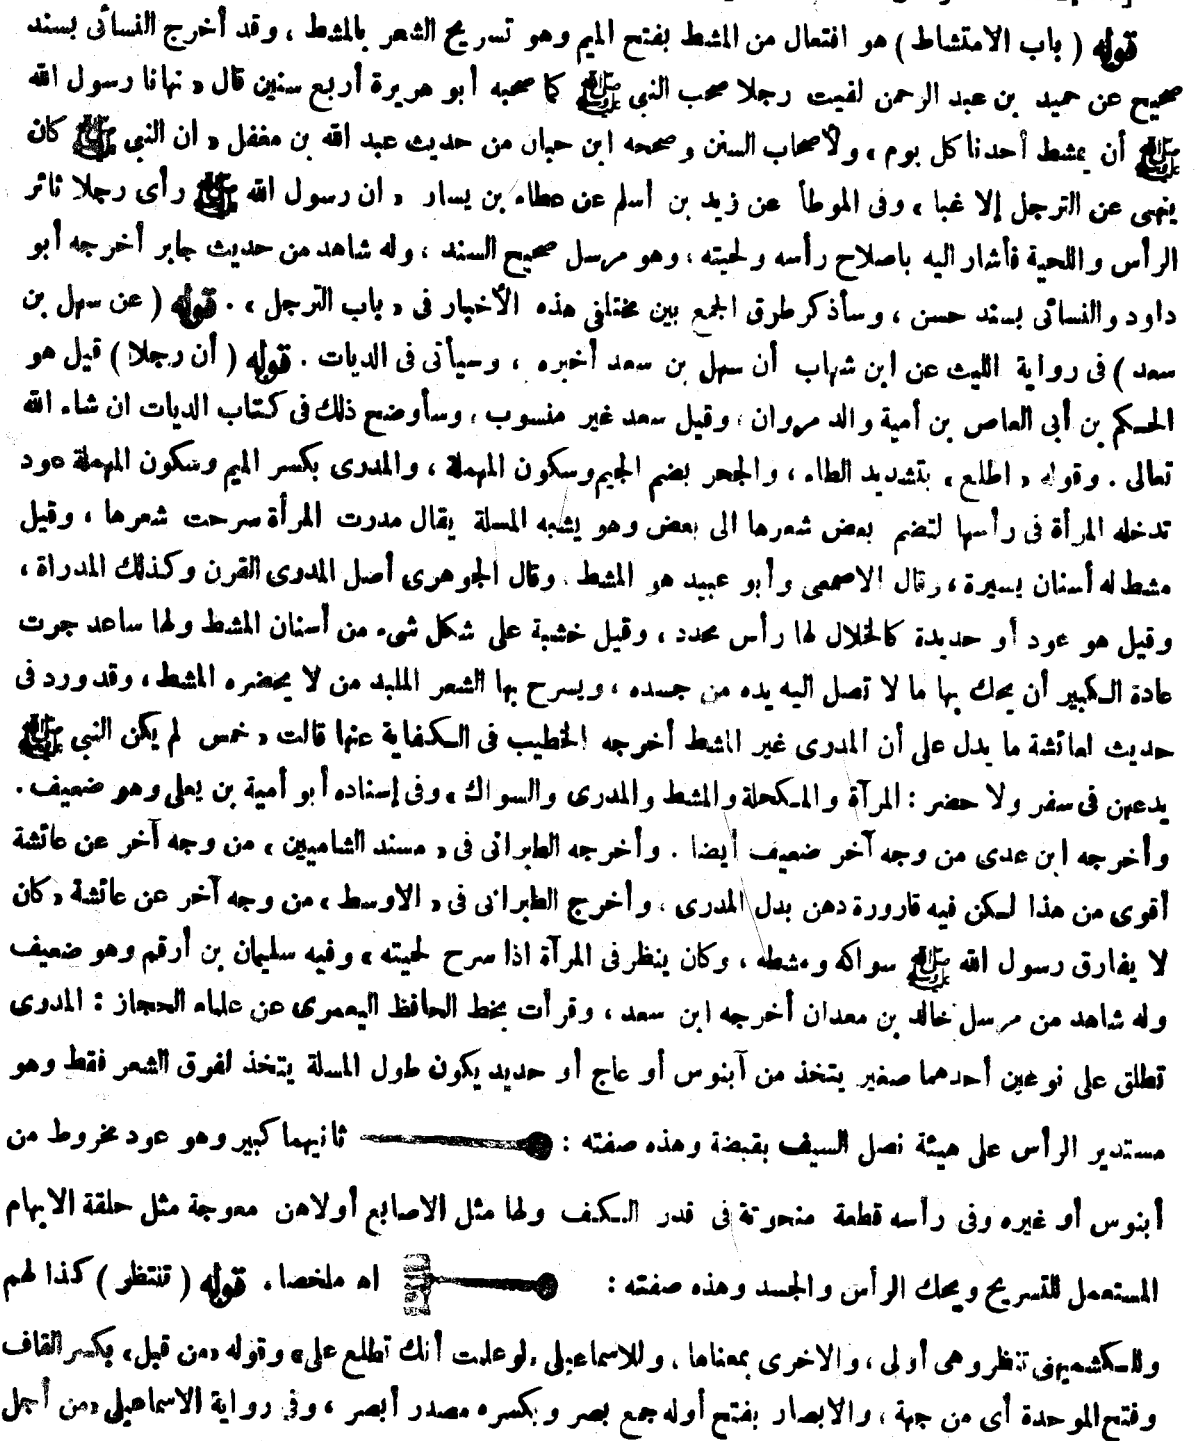 قوله ( باب الامتشاط ) هو افتعال من المشط بفتح الميم وهو تسريح الشعر بالمشط ، وقد أخرج النسائى بسند
صحيح عن حميد بن عبد الرحمن لقيت رجلا صحب النبى ﷺ كما صحبه أبو هريرة أربع سنين قال « نهانا رسول الله
ﷺ أن يمشط أحدنا كل يوم » ولأصحاب السنن وصححه ابن حبان من حديث عبد الله بن مغفل « ان النبى ﷺ كان
ينهى عن الترجل إلا غبا » وفى الموطأ عن زيد بن أسلم عن عطاء بن يسار « ان رسول الله ﷺ رأى رجلا ثائر
الرأس واللحية فأشار اليه باصلاح رأسه ولحيته » وهو مرسل صحيح السند ، وله شاهد من حديث جابر أخرجه أبو
داود والنسائى بسند حسن ، وسأذكر طرق الجمع بين مختلفى هذه الأخبار فى « باب الترجل » . قوله ( عن سهل بن
سعد ) فى رواية الليث عن ابن شهاب أن سهل بن سعد أخبره ، وسيأتى فى الديات . قوله ( أن رجلا ) قيل هو
الحكم بن أبى العاص بن أمية والد مروان ، وقيل سعد غير منسوب ، وسأوضح ذلك فى كتاب الديات ان شاء الله
تعالى . وقوله « اطلع » بتشديد الطاء ، والجحر بضم الجيم وسكون المهملة ، والمدرى بكسر الميم وسكون المهملة عود
تدخله المرأة فى رأسها لتضم بعض شعرها الى بعض وهو يشبه المسلة يقال مدرت المرأة سرحت شعرها ، وقيل
مشط له أسنان يسيرة ، وقال الاصمعى وأبو عبيد هو المشط ، وقال الجوهرى أصل المدرى القرن وكذلك المدراة ،
وقيل هو عود أو حديدة كالخلال لها رأس محدد ، وقيل خشبة على شكل شىء من أسنان المشط ولها ساعد جرت
عادة الكبير أن يحك بها ما لا تصل اليه يده من جسده ، ويسرح بها الشعر الملبد من لا يحضره المشط ، وقد ورد فى
حديث لعائشة ما يدل على أن المدرى غير المشط أخرجه الخطيب فى الكفاية عنها قالت « خمس لم يكن النبى ﷺ
يدعهن فى سفر ولا حضر : المرآة والمكحلة والمشط والمدرى والسواك » وفى إسناده أبو أمية بن يعلى وهو ضعيف .
وأخرجه ابن عدى من وجه آخر ضعيف أيضا . وأخرجه الطبرانى فى « مسند الشاميين » من وجه آخر عن عائشة
أقوى من هذا لكن فيه قارورة دهن بدل المدرى ، وأخرج الطبرانى فى « الاوسط » من وجه آخر عن عائشة « كان
لا يفارق رسول الله ﷺ سواكه ومشطه ، وكان ينظر فى المرآة اذا سرح لحيته » وفيه سليمان بن أرقم وهو ضعيف
وله شاهد من مرسل خالد بن معدان أخرجه ابن سعد ، وقرأت بخط الحافظ اليعمرى عن علماء الحجاز : المدرى
تطلق على نوعين أحدهما صغير يتخذ من آبنوس أو عاج أو حديد يكون طول المسلة يتخذ لفرق الشعر فقط وهو
مستدير الرأس على هيئة نصل السيف بقبضة وهذه صفته : ثانيهما كبير وهو عود مخروط من
أبنوس أو غيره وفى رأسه قطعة منحوتة فى قدر الكف ولها مثل الاصابع أولاهن معوجة مثل حلقة الابهام
المستعمل للتسريح ويحك الرأس والجسد وهذه صفته : اه ملخصا . قوله ( تنتظر ) كذا لهم
وللكشميهنى تنظر وهى أولى ، والاخرى بمعناها ، وللاسماعيلى « لو علمت أنك تطلع على » وقوله « من قبل » بكسر القاف
وفتح الموحدة أى من جهة ، والابصار بفتح أوله جمع بصر وبكسره مصدر أبصر ، وفى رواية الاسماعيلى « من أجل